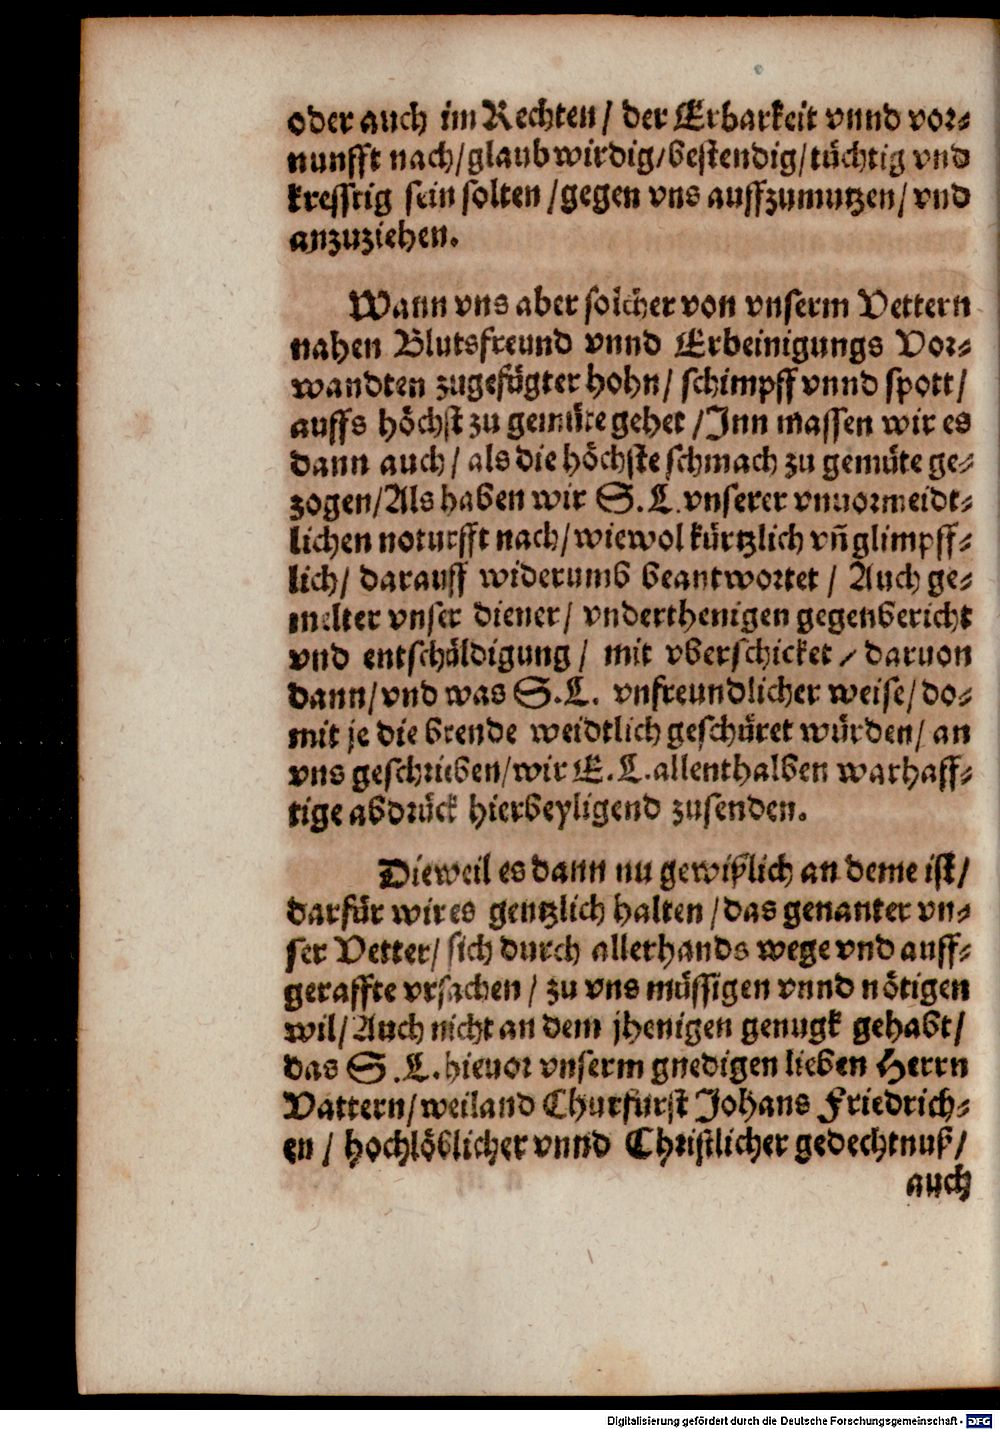 oder auch im Rechten / der Erbarkeit vnnd vor⸗
nunfft nach/glaubwirdig/bestendig/tüchtig vnd
krefftig sein solten /gegen vns auffzumutzen/ vnd
anzuziehen.
Wann vns aber solcher von vnserm Vettern
nahen Blutsfreund vnnd Erbeinigungs Vor⸗
wandten zugefügter hohn/ schimpff vnnd spott/
auffs höchst zu gemüte gehet /Inn massen wir es
dann auch / als die höchste schmach zu gemüte ge⸗
zogen/Als haben wir S.L.vnserer vnuormeidt⸗
lichen noturfft nach/wiewol kürtzlich vñ glimpff⸗
lich/ darauff widerumb beantwortet / Auch ge⸗
melter vnser diener/ vnderthenigen gegenbericht
vnd entschüldigung / mit vberschicket / daruon
dann/vnd was S.L. vnfreundlicher weise/ do⸗
mit je die brende weidtlich geschüret würden/ an
vns geschrieben/wir E.L.allenthalben warhaff⸗
tige abdrück hierbeyligend zusenden.
Dieweil es dann nu gewißlich an deme ist/
darfür wir es gentzlich halten /das genanter vn⸗
ser Vetter/ sich durch allerhands wege vnd auff⸗
geraffte vrsachen / zu vns müssigen vnnd nötigen
wil/Auch nicht an dem jhenigen genugk gehabt/
das S.L.hieuor vnserm gnedigen lieben Herrn
Vattern/weiland Churfürst Johans Friedrich⸗
en / hochlöblicher vnnd Christlicher gedechtnuß/
auch
Digitalisierung gefördert durch die Deutsche Forschungsgemeinschaft - DFG